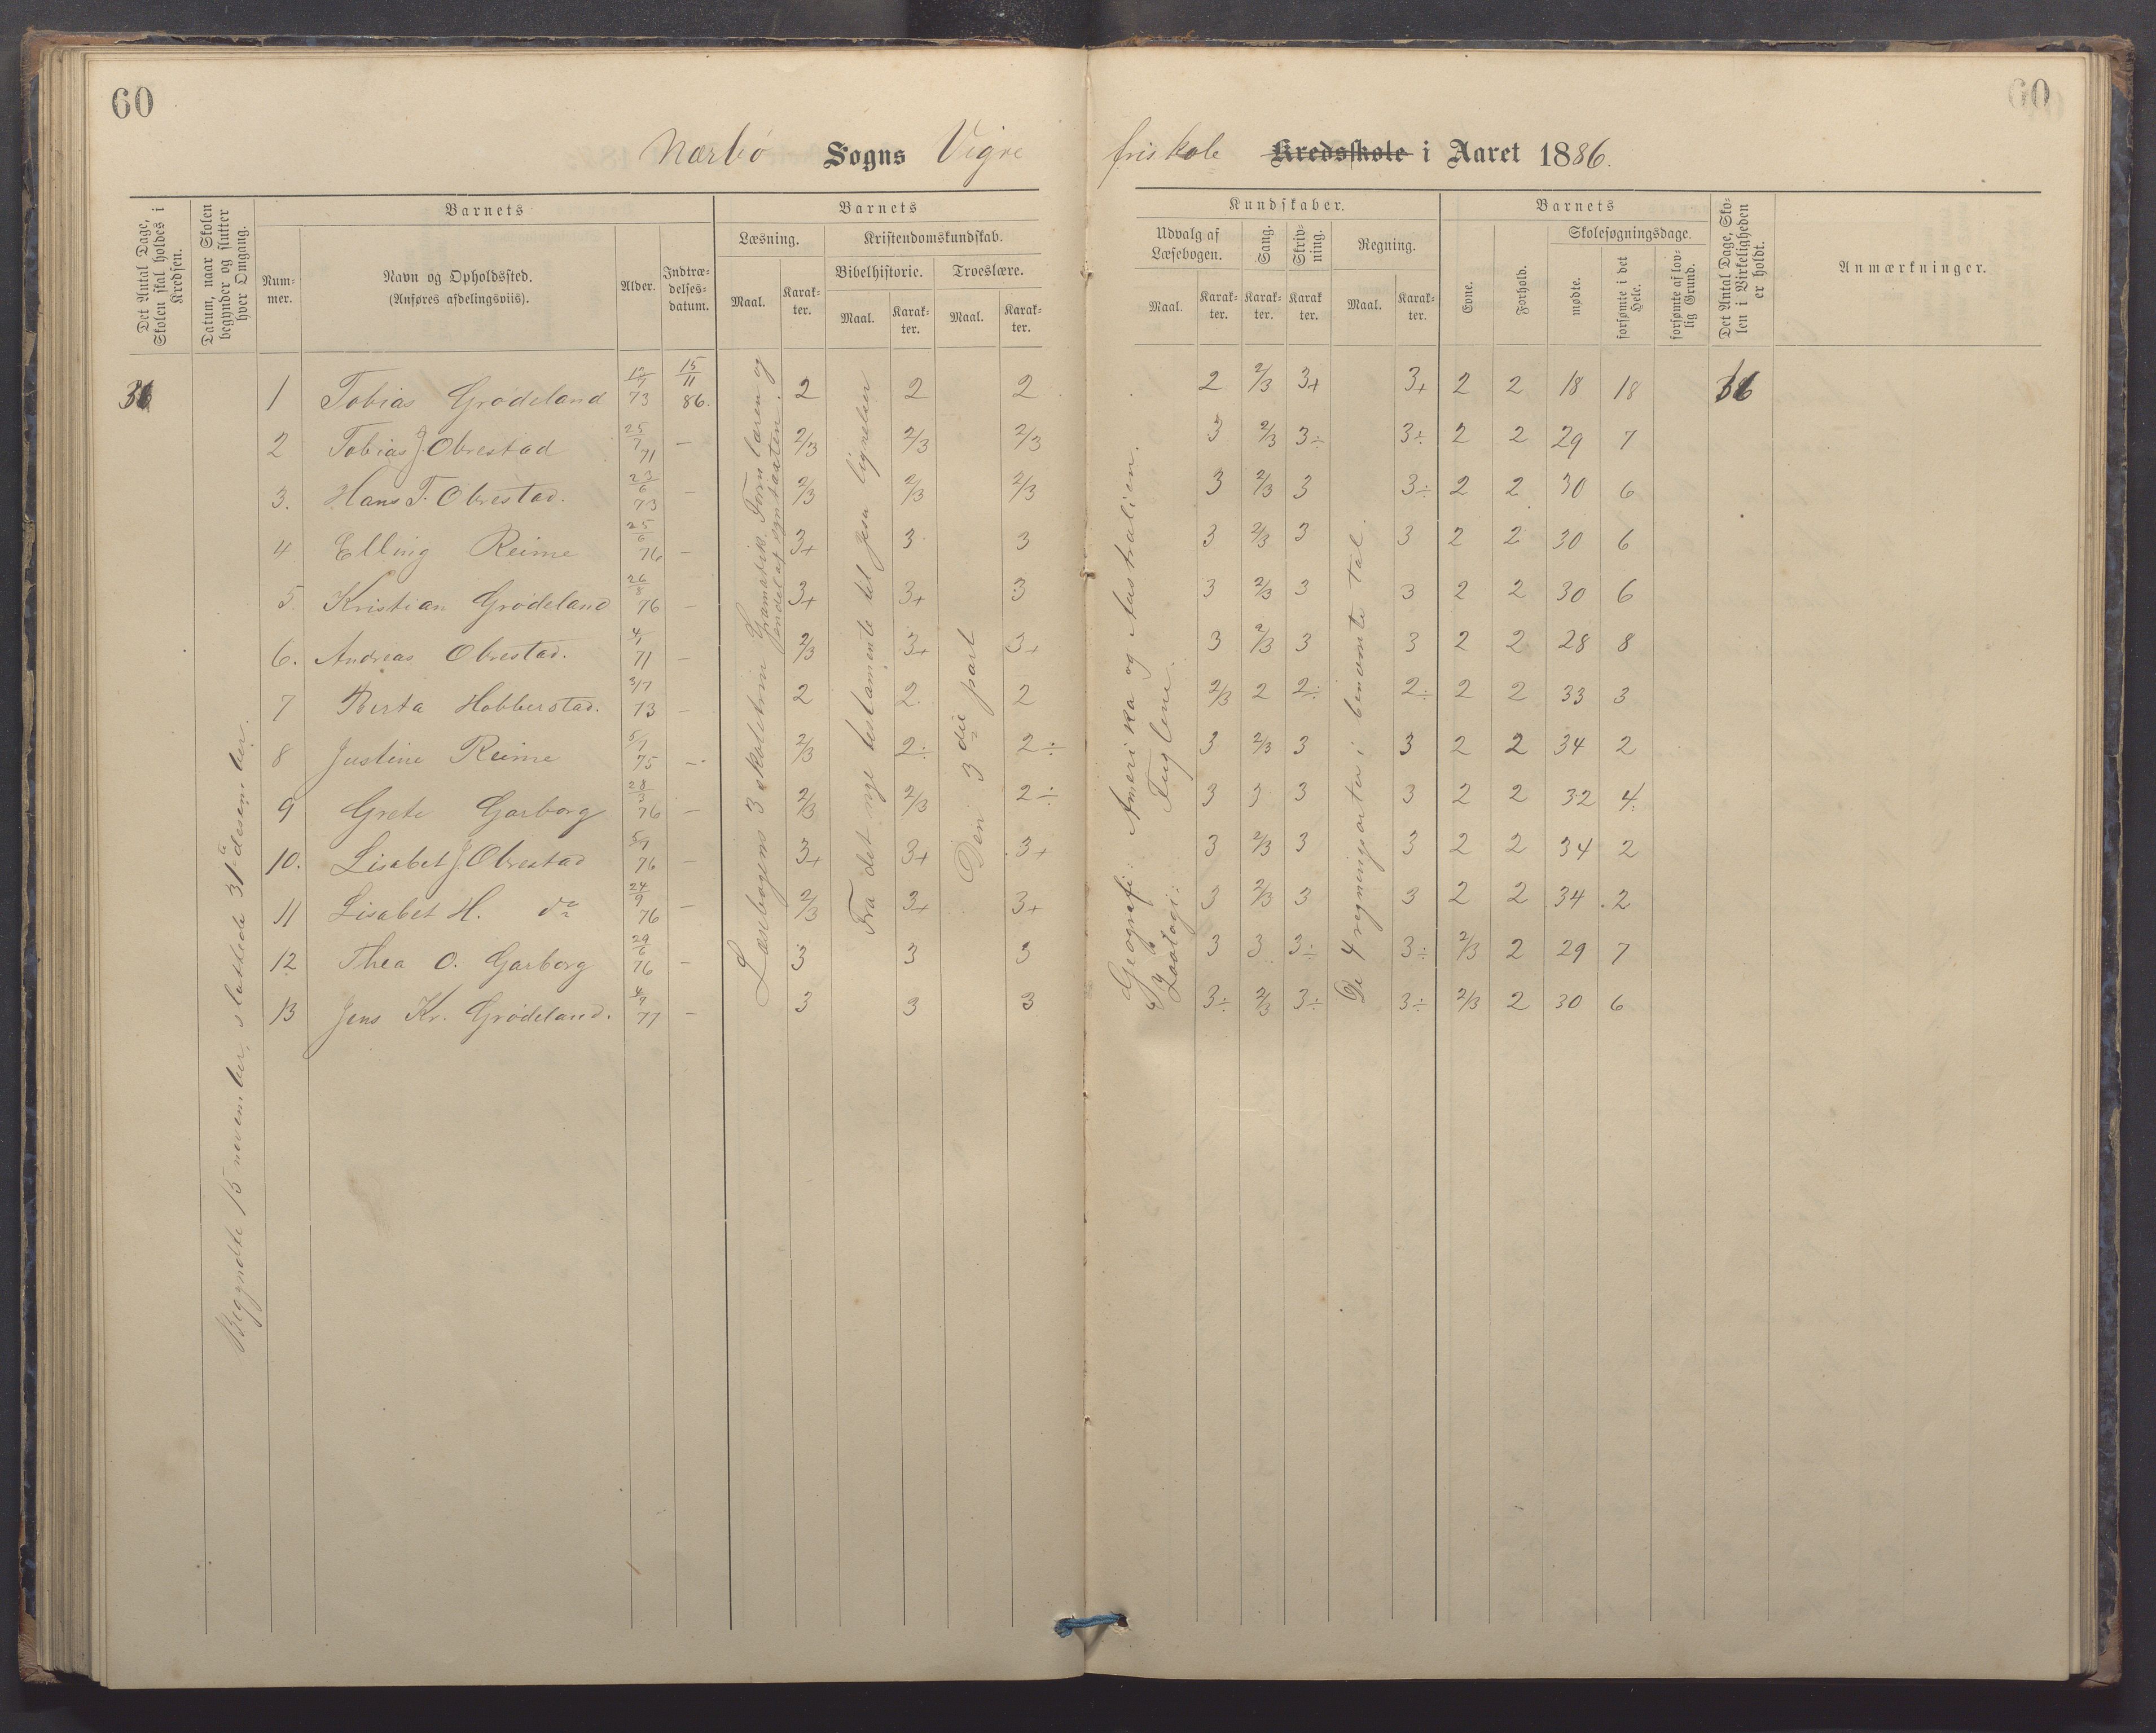 60
60
Nærbø Sogns Vigre friskole Kredsskole i Aaret 1886.
Det Antal Dage, Skolen skal holdes i Kredsen.
Datum, naar Skolen begynder og slutter hver Omgang.
Barnets
Nummer.
Navn og Opholdssted. (Anføres afdelingsviis).
Alder.
Indtrædelsesdatum.
Barnets
Læsning.
Maal.
Karakter.
Kristendomskundskab.
Bibelhistorie.
Maal.
Karakter.
Troeslære.
Maal.
Karakter.
Kundskaber.
Udvalg af Læsebogen.
Maal.
Karakter.
Sang.
Karakter.
Skrivning.
Karakter.
Regning.
Maal.
Karakter.
Barnets
Evne.
Forhold.
Skolesøgningsdage.
mødte.
forsømte i det Hele.
forsømte af lovlig Grund.
Det Antal Dage, Skolen i Virkeligheden er holdt.
Anmærkninger.
36
Begyndte 15 november, sluttede 31te desember.
Læsebogens 3 skoletrin Gramatik. Formlæren og
endel af syntaxten.
Fra det nye testamente til Jesu lignelser
Den 3die part
Geografi: Amerika og Australien.
Zoologi: Fuglene.
De 4 regningsarter i benævnte tal.
1 Tobias Grødeland 73 15/11 86. 2 2 2 2 2/3 3+ 3+ 2 2 18 18 36
2 Tobias J. Obrestad 25/7 71 — 2/3 2/3 2/3 3 2/3 3÷ 3÷ 2 2 29 7
3. Hans T. Obrestad. 23/6 73 — 2/3 2/3 2/3 3 2/3 3 3÷ 2 2 30 6
4 Elling Reime 25/6 76 — 3+ 3 3 3 2/3 3 3 2 2 30 6
5. Kristian Grødeland 26/8 76 — 3+ 3+ 3 3 2/3 3 3 2 2 30 6
6. Andreas Obrestad. 71 — 2/3 3+ 3+ 3 2/3 3 3 2 2 28 8
7 Berta Hobberstad. 73 — 2 2 2 2/3 2 2÷ 2÷ 2 2 33 3
8 Justine Reime 75 — 2/3 2÷ 2÷ 3 2/3 3 3 2 2 34 2
9 Grete Garborg 76 — 2/3 2/3 2÷ 3 3 3 3 2 2 32 4
10. Lisabet J. Obrestad 76 — 3+ 3+ 3+ 3 2/3 3 3 2 2 34 2
11 Lisabet H. do 24/9 76 — 2/3 3+ 3+ 3 2/3 3 3 2 2 34 2
12 Thea O. Garborg 29/6 76 — 3 3 3 3 3 3÷ 3÷ 2/3 2 29 7
13 Jens Kr. Grødeland. 77 — 3 3 3 3÷ 2/3 3÷ 3÷ 2/3 2 30 6